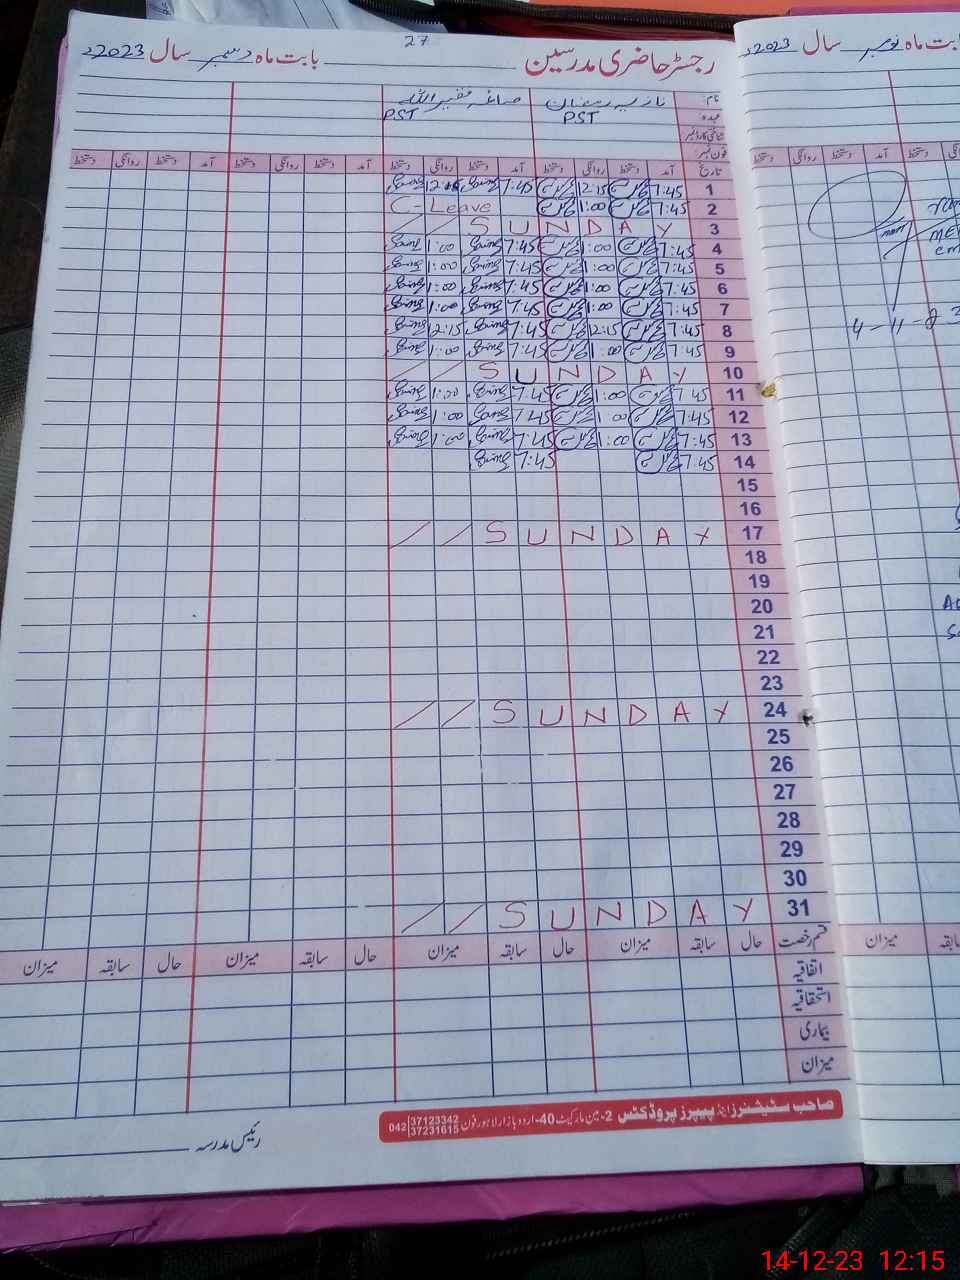 27
رجسٹر حاضری مدرسین بابت ماہ دسمبر سال 2023ء
نام: نازیہ رمضان صائمہ فقیر اللہ
عہدہ PST PST
شناختی کارڈ نمبر
فون نمبر
تاریخ آمد دستخط روانگی دستخط آمد دستخط روانگی دستخط آمد دستخط روانگی دستخط آمد دستخط روانگی دستخط
1 7:45 12:15 7:45 12:15
2 7:45 1:00 C-Leave
3 SUNDAY
4 7:45 1:00 7:45 1:00
5 7:45 1:00 7:45 1:00
6 7:45 1:00 7:45 1:00
7 7:45 1:00 7:45 1:00
8 7:45 12:15 7:45 12:15
9 7:45 1:00 7:45 1:00
10 SUNDAY
11 7:45 1:00 7:45 1:00
12 7:45 1:00 7:45 1:00
13 7:45 1:00 7:45 1:00
14 7:45 7:45
15
16
17 SUNDAY
18
19
20
21
22
23
24 SUNDAY
25
26
27
28
29
30
31 SUNDAY
قسم رخصت حال سابقہ میزان حال سابقہ میزان حال سابقہ میزان حال سابقہ میزان
اتفاقیہ
استحقاقیہ
بیماری
میزان
صاحب سٹیشنرز اینڈ پیپرز پروڈکٹس 2-مین مارکیٹ 40-اردو بازار لاہور فون 042 37123342 37231615
رئیس مدرسہ
بابت ماہ نومبر سال 2023ء
آمد دستخط روانگی دستخط
میزان
14-12-23 12:15